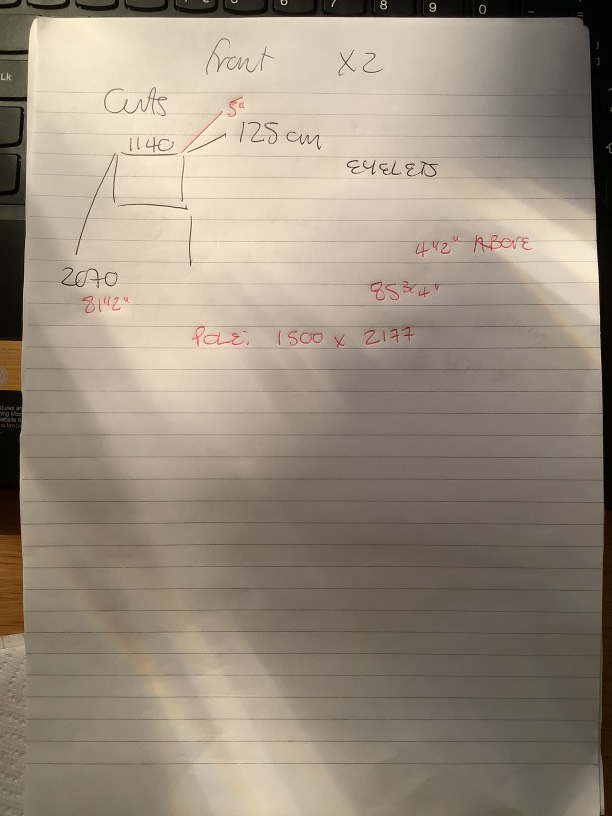 front x2
Cuts
5"
1140
125 cm
EYELETS
4 1/2" ABOVE
2070
85 3/4"
81 1/2"
Pole: 1500 x 2177